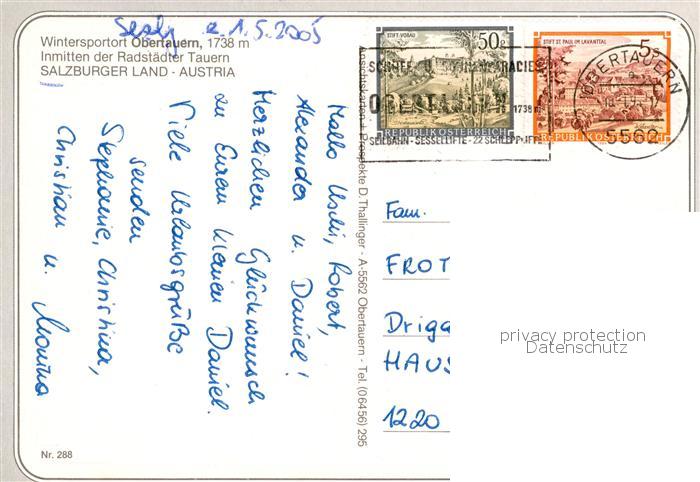 1.5.2005
Wintersportort Obertauern, 1738 m
Inmitten der Radstädter Tauern
SALZBURGER LAND - AUSTRIA
STIFT VORAU
50g
REPUBLIK ÖSTERREICH
STIFT ST. PAUL IM LAVANTTAL
5s
REPUBLIK ÖSTERREICH
1738 m
SEILBAHN - SESSELLIFTE - 22 SCHLEPPLIFTE
OBERTAUERN
5562
Ansichtskarten - Prospekte D. Thallinger - A-5562 Obertauern - Tel. (06456) 295
Hallo Uschi, Robert,
Alexander u. Daniel!
Herzlichen Glückwunsch
zu Eurem kleinen Daniel.
Viele Urlaubsgrüße
senden
Stephanie, Christina,
Christian u. Monika
Fam.
FROT
Drigg
HAUS
1220
privacy protection
Datenschutz
Nr. 288